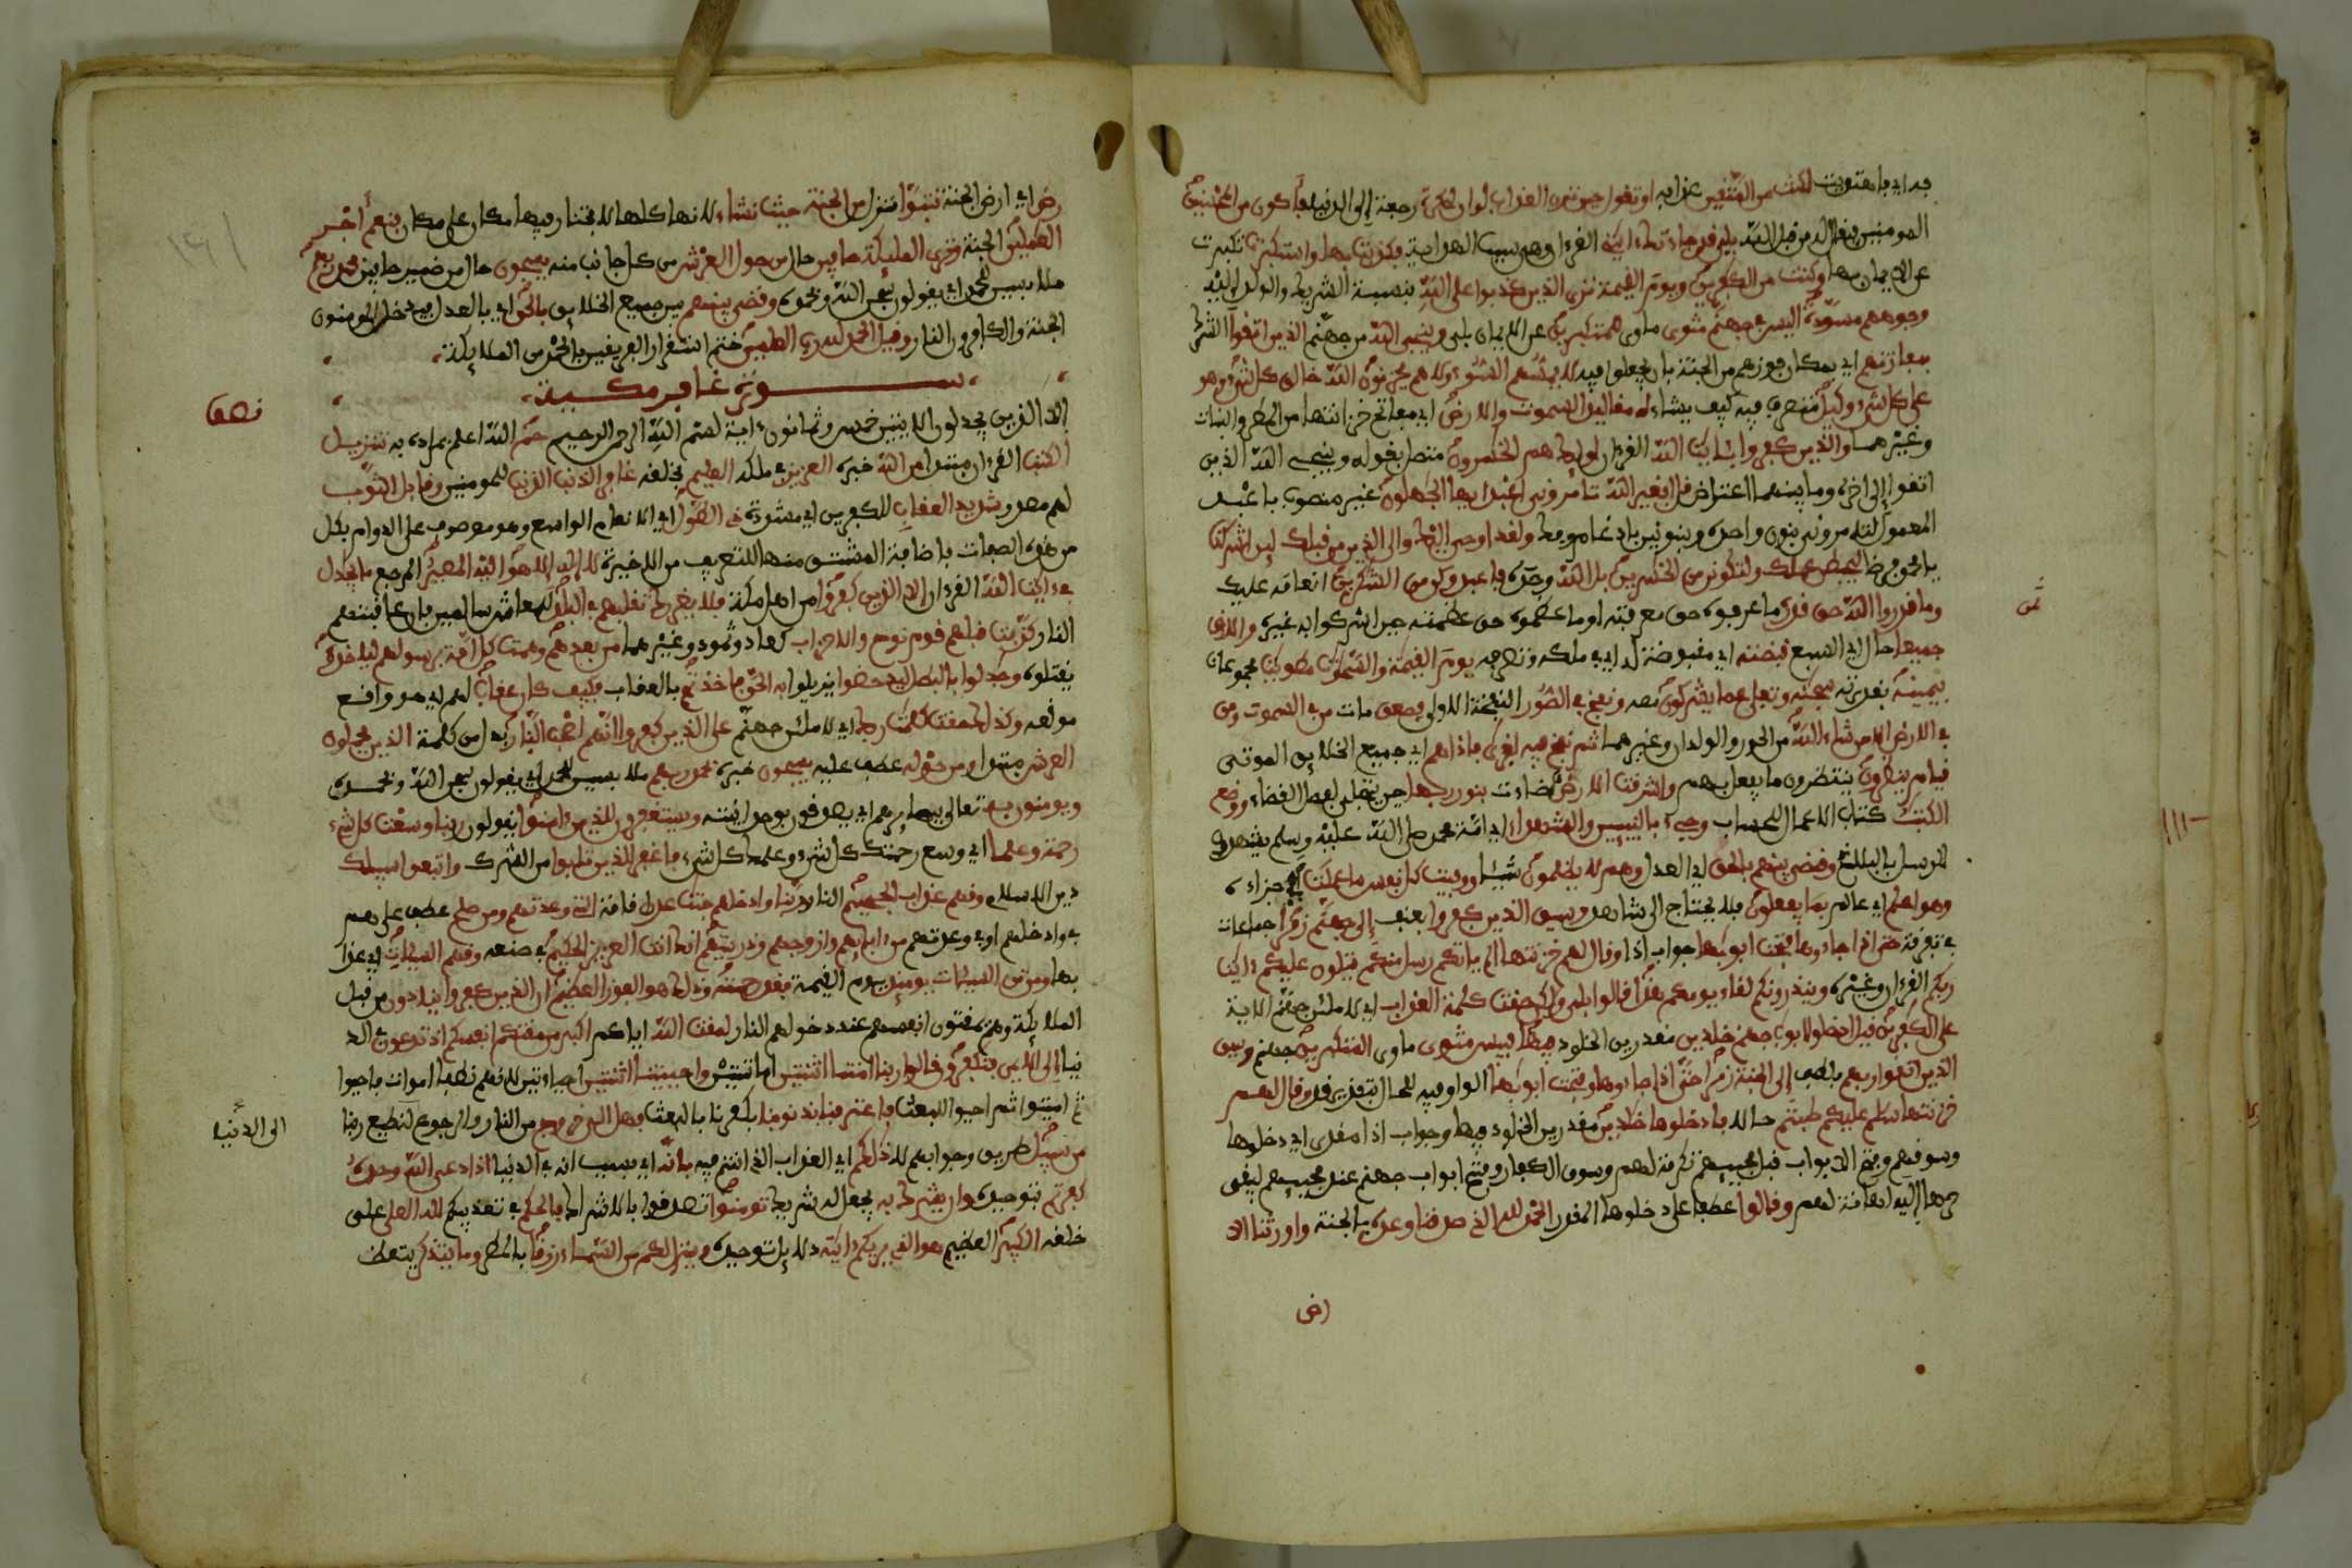 به اي باهتديت لكنت من المتقين عذابه او تقول حين ترى العذاب لو ان لي كرة رجعة الى الدنيا فاكون من المحسنين
المومنين فيقال له من قبل الله بلى قد جاءتك ءايتي القرءان وهي سبب الهداية فكذبت بها واستكبرت تكبرت
عن الايمان بها وكنت من الكفرين ويوم القيمة ترى الذين كذبوا على الله بنسبة الشريك والولد اليه
وجوههم مسودة اليس في جهنم مثوى ماوى للمتكبرين عن الايمان بلى وينجي الله من جهنم الذين اتقوا الشرك
بمفازتهم اي بمكان فوزهم من الجنة بان يجعلوا فيه لا يمسهم السوء ولا هم يحزنون الله خالق كل شيء وهو
على كل شيء وكيل متصرف فيه كيف يشاء له مقاليد السموت والارض اي مفاتح خزائنها من المطر والنبات
وغيرهما والذين كفروا بئايت الله القرءان اولئك هم الخسرون متصل بقوله وينجي الله الذين
اتقوا الى اخره وما بينهما اعتراض قل افغير الله تامروني اعبد ايها الجهلون غير منصوب باعبد
المعمول لتامروني بنون واحدة وبنونين بادغام وفك ولقد اوحي اليك والى الذين من قبلك لين اشركت
يا محمد فرضا ليحبطن عملك ولتكونن من الخسرين بل الله وحده فاعبد وكن من الشكرين انعامه عليك
وما قدروا الله حق قدره ما عرفوه حق معرفته او ما عظموه حق عظمته حين اشركوا به غيره والارض
جميعا حال اي السبع قبضته اي مقبوضة له اي في ملكه وتصرفه يوم القيمة والسموت مطويت مجموعات
بيمينه بقدرته سبحنه وتعلى عما يشركون معه ونفخ في الصور النفخة الاولى فصعق مات من في السموت ومن
في الارض الا من شاء الله من الحور والولدان وغيرهما ثم نفخ فيه اخرى فاذا هم اي جميع الخلايق الموتى
قيام ينظرون ينتظرون ما يفعل بهم واشرقت الارض اضاءت بنور ربها حين يتجلى لفصل القضاء ووضع
الكتب كتاب الاعمال للحساب وجيء بالنبيين والشهداء اي امة محمد صلى الله عليه وسلم يشهدون
للرسل بالبلاغ وقضي بينهم بالحق اي العدل وهم لا يظلمون شيئا ووفيت كل نفس ما عملت اي جزاءه
وهو اعلم اي عالم بما يفعلون فلا يحتاج الى شاهد وسيق الذين كفروا بعنف الى جهنم زمرا جماعات
في تفرقة حتى اذا جاءوها فتحت ابوبها جواب اذا وقال لهم خزنتها الم ياتكم رسل منكم يتلون عليكم ءايت
ربكم القرءان وغيره وينذرونكم لقاء يومكم هذا قالوا بلى ولكن حقت كلمة العذاب اي لاملئن جهنم الاية
على الكفرين قيل ادخلوا ابوب جهنم خلدين مقدرين الخلود فيها فبيس مثوى ماوى المتكبرين جهنم وسيق
الذين اتقوا ربهم بلطف الى الجنة زمرا حتى اذا جاءوها وفتحت ابوبها الواو فيه للحال بتقدير قد وقال لهم
خزنتها سلم عليكم طبتم حالا فادخلوها خلدين مقدرين الخلود فيها وجواب اذا مقدر اي دخلوها
وسوقهم وفتح الابواب قبل مجيئهم تكرمة لهم وسوق الكفار وفتح ابواب جهنم عند مجيئهم ليبقى
حرها اليه اهانة لهم وقالوا عطفا على دخلوها المقدر الحمد لله الذي صدقنا وعده بالجنة واورثنا الا
رض
ثمن
رض اي ارض الجنة نتبوا ننزل من الجنة حيث نشاء لانها كلها لا يختار فيها مكان على مكان فنعم اجر
العملين الجنة وترى المليكة حافين حال من حول العرش من كل جانب منه يسبحون حال من ضمير حافين بحمد ربهم
ملابسين للحمد اي يقولون سبحن الله وبحمده وقضي بينهم بين جميع الخلايق بالحق اي بالعدل فيدخل المومنون
الجنة والكافرون النار وقيل الحمد لله رب العلمين ختم استقرار الفريقين بالحمد من الملايكة
سورة غافر مكية
الا الذين يجدلون الايتين خمس وثمانون ءاية بسم الله الرحمن الرحيم حم الله اعلم بمراده به تنزيل
الكتب القرءان مبتدا من الله خبره العزيز في ملكه العليم بخلقه غافر الذنب للمومنين وقابل التوب
لهم مصدر شديد العقاب للكفرين اي مشدده ذي الطول اي الانعام الواسع وهو موصوف على الدوام بكل
من هذه الصفات باضافة المشتق منها للتعريف من الاخيرة لا اله الا هو اليه المصير المرجع ما يجدل
في ءايت الله القرءان الا الذين كفروا من اهل مكة فلا يغررك تقلبهم في البلد للمعاش سالمين فان عاقبتهم
النار كذبت قبلهم قوم نوح والاحزاب كعاد وثمود وغيرهما من بعدهم وهمت كل امة برسولهم لياخذوه
يقتلوه وجدلوا بالبطل ليدحضوا يزيلوا به الحق فاخذتهم بالعقاب فكيف كان عقاب لهم اي هو واقع
موقعه وكذلك حقت كلمت ربك اي لاملئن جهنم على الذين كفروا انهم اصحب النار بدل من كلمة الذين يحملون
العرش مبتدا ومن حوله عطف عليه يسبحون خبره بحمد ربهم ملابسين للحمد اي يقولون سبحن الله وبحمده
ويومنون به تعالى ببصايرهم اي يصدقون بوحدانيته ويستغفرون للذين ءامنوا يقولون ربنا وسعت كل شيء
رحمة وعلما اي وسع رحمتك كل شيء وعلمك كل شيء فاغفر للذين تابوا من الشرك واتبعوا سبيلك
دين الاسلام وقهم عذاب الجحيم النار ربنا وادخلهم جنت عدن اقامة التي وعدتهم ومن صلح عطف على هم
في وادخلهم او في وعدتهم من ءابايهم وازوجهم وذريتهم انك انت العزيز الحكيم في صنعه وقهم السيئات اي عذا
بها ومن تق السيئات يوميذ يوم القيمة فقد رحمته وذلك هو الفوز العظيم ان الذين كفروا ينادون من قبل
الملايكة وهم يمقتون انفسهم عند دخولهم النار لمقت الله اياكم اكبر من مقتكم انفسكم اذ تدعون في الد
نيا الى الايمن فتكفرون قالوا ربنا امتنا اثنتين اماتتين واحييتنا اثنتين احياءتين لانهم نطفا اموات فاحيوا
ثم اميتوا ثم احيوا للبعث فاعترفنا بذنوبنا بكفرنا بالبعث فهل الى خروج من النار والرجوع لنطيع ربنا
من سبيل طريق وجوابهم لا ذلكم اي العذاب الذي انتم فيه بانه اي بسبب انه في الدنيا اذا دعي الله وحده
كفرتم بتوحيده وان يشرك به يجعل له شريك تومنوا تصدقوا بالاشراك فالحكم في تعذيبكم لله العلي على
خلقه الكبير العظيم هو الذي يريكم ءايته دلايل توحيده وينزل لكم من السماء رزقا بالمطر وما يتذكر يتعظ
نصف
الى الدنيا